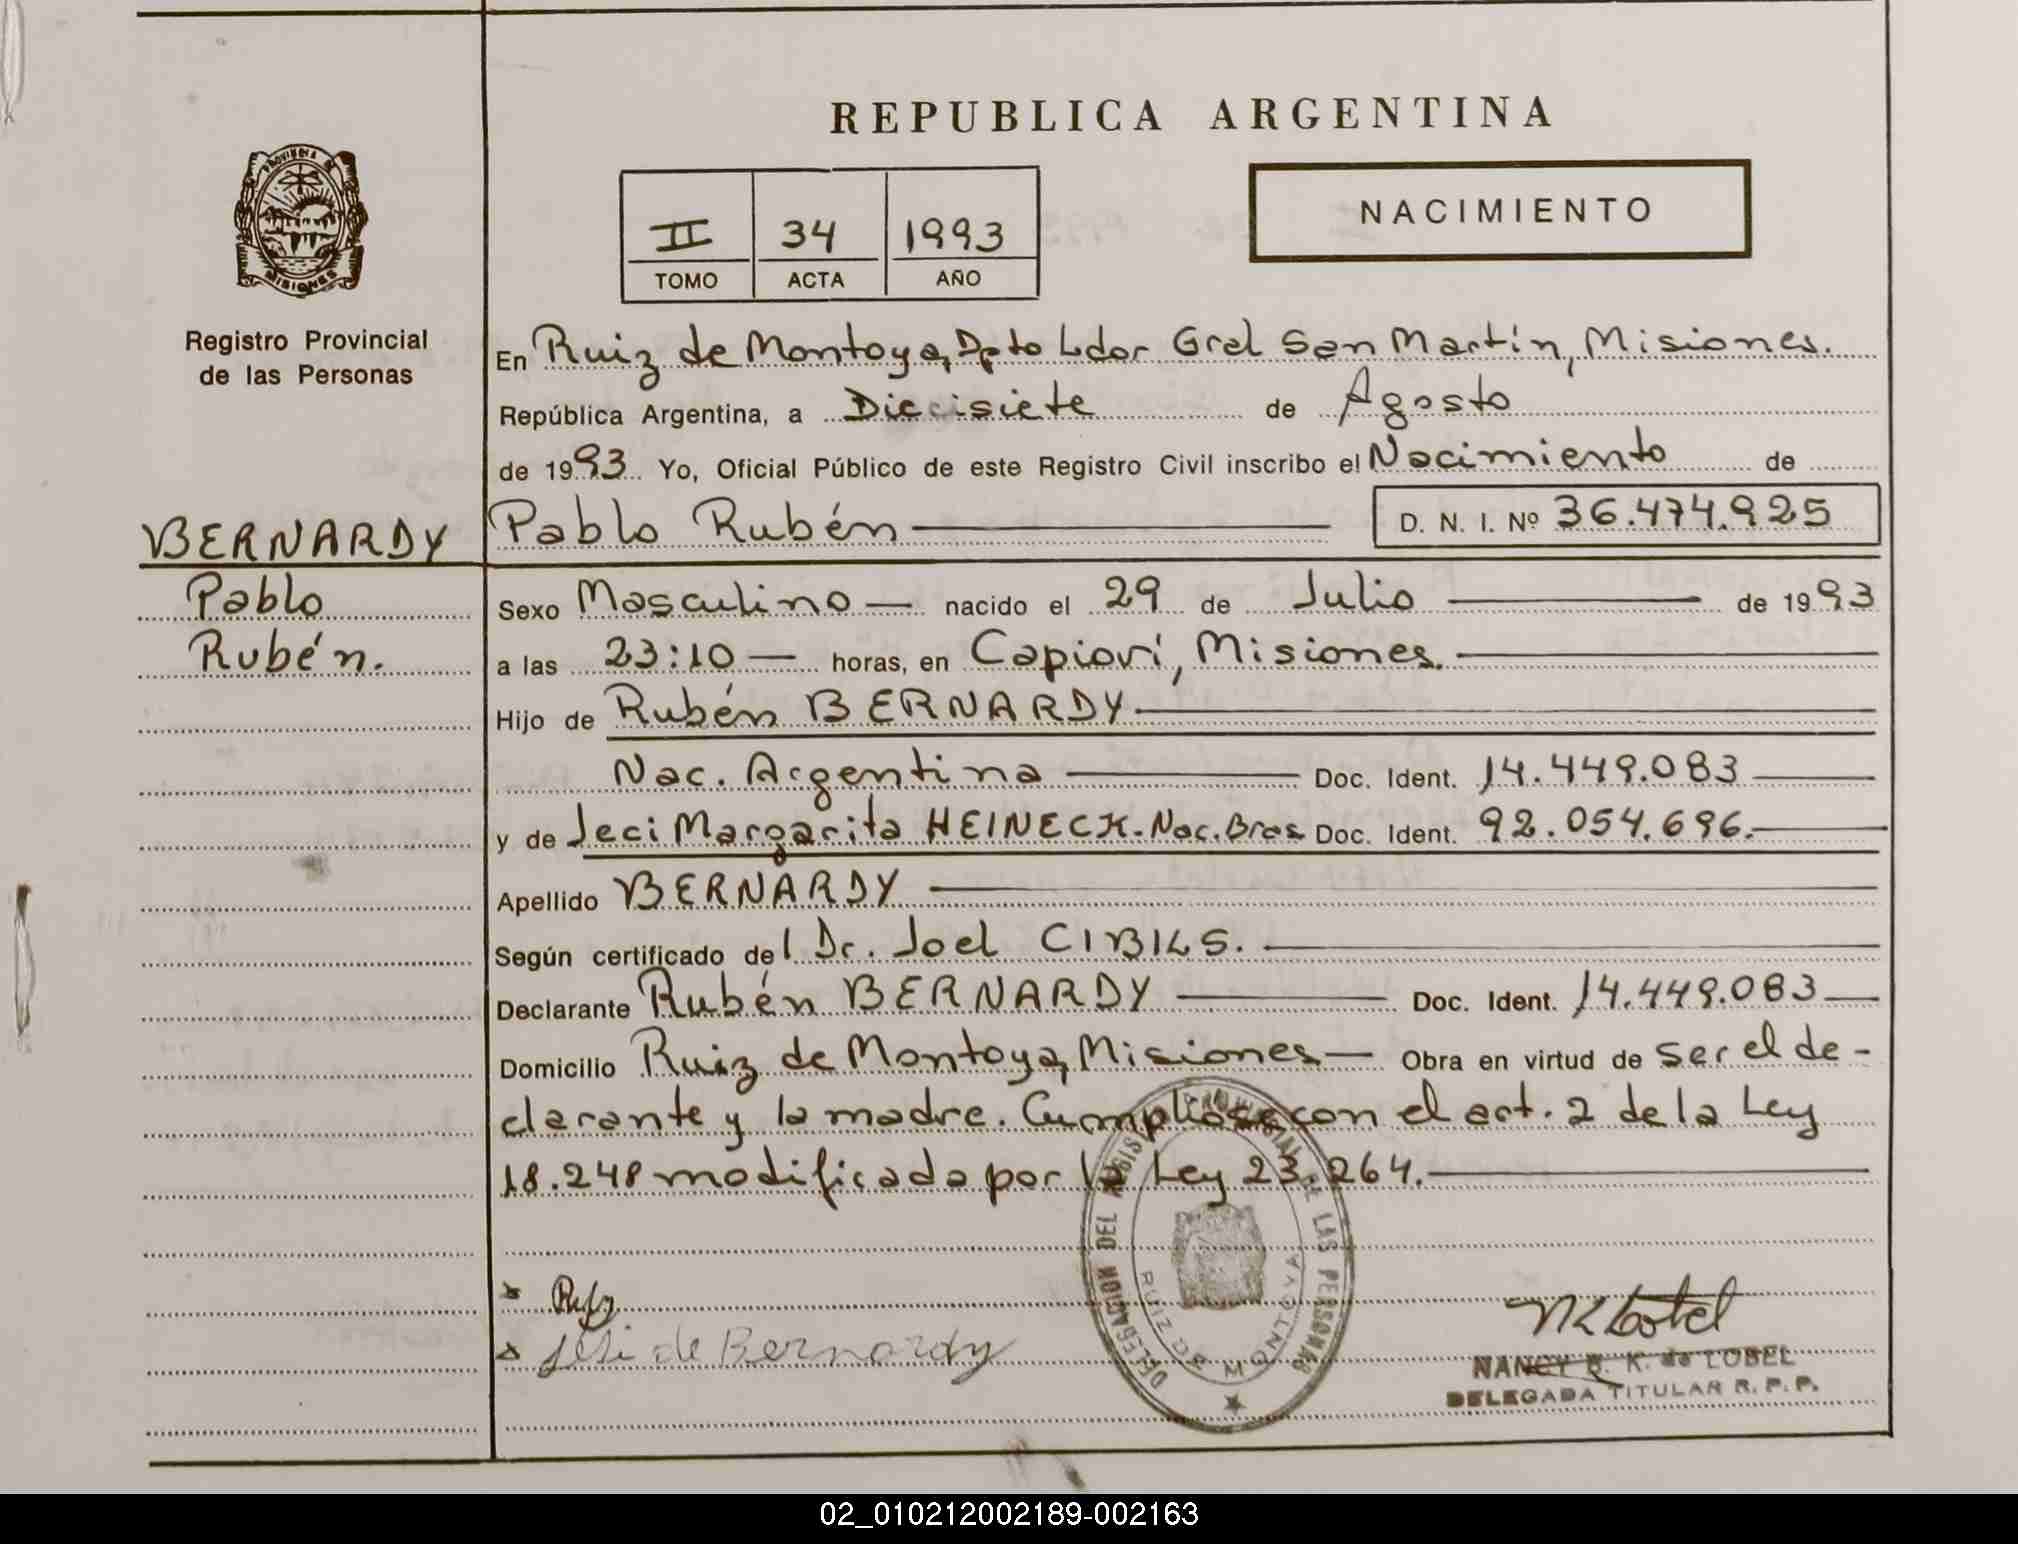 REPUBLICA ARGENTINA
PROVINCIA DE
MISIONES
Registro Provincial
de las Personas
II 34 1993
TOMO ACTA AÑO
NACIMIENTO
En Ruiz de Montoya, Dpto Ldor Gral San Martín, Misiones.
República Argentina, a Diecisiete de Agosto
de 1993 Yo, Oficial Público de este Registro Civil inscribo el Nacimiento de
BERNARDY
Pablo
Rubén.
Pablo Rubén D. N. I. Nº 36.474.925
Sexo Masculino nacido el 29 de Julio de 1993
a las 23:10 horas, en Capioví, Misiones.
Hijo de Rubén BERNARDY
Nac. Argentina Doc. Ident. 14.449.083
y de Jeci Margarita HEINECK-Nac. Bras Doc. Ident. 92.054.696.
Apellido BERNARDY
Según certificado del Dr. Joel CIBILS.
Declarante Rubén BERNARDY Doc. Ident. 14.449.083
Domicilio Ruiz de Montoya, Misiones Obra en virtud de ser el de-
clarante y la madre. Cumplióse con el art. 2 de la Ley
18.248 modificada por la Ley 23.264.
DELEGACION DEL REGISTRO PROVINCIAL DE LAS PERSONAS
RUIZ DE MONTOYA
de Bernardy
NANCY B. K. de LOBEL
DELEGADA TITULAR R. P. P.
02_010212002189-002163